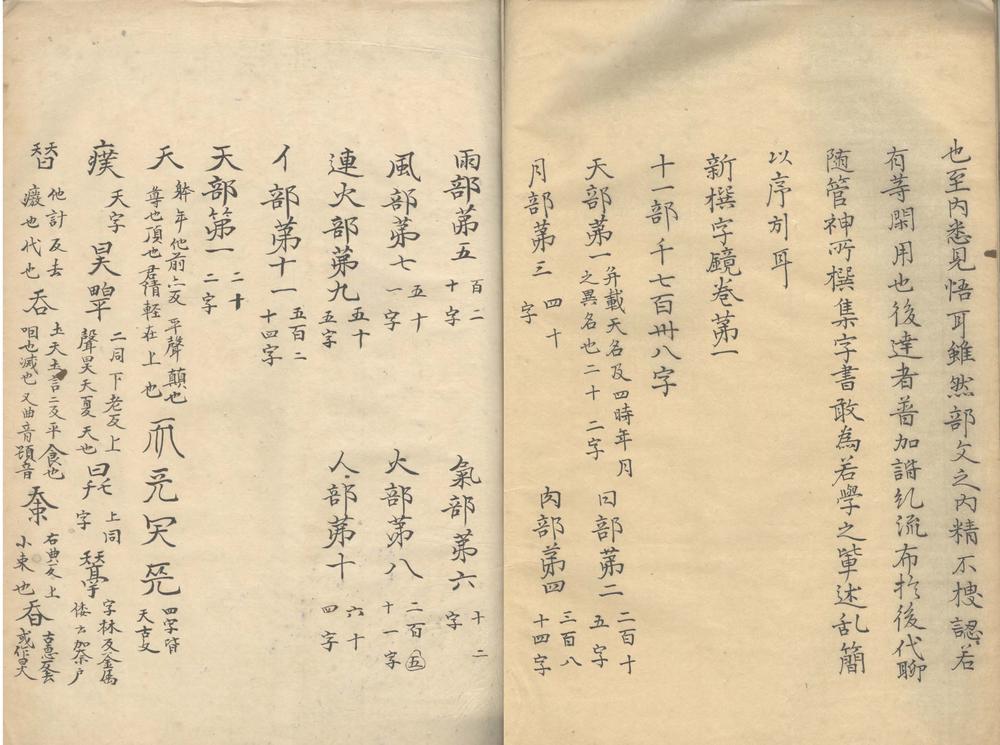 也至内悉見悟耳雖然部文之内精不捜認若
有等閑用也後達者普加諧糺流布於後代聊
随管神所撰集字書敢為若学之輩述乱簡
以序引耳
新撰字鏡巻苐一
十一部千七百卌八字
天部苐一并載天名及四時年月之異名也二十二字 日部苐二二百十五字
月部苐三四十字 肉部苐四三百八十四字
雨部苐五百二十字 氣部苐六十二字
風部苐七五十一字 火部苐八二百五十一字
連火部苐九五十五字 人部苐十六十四字
亻部苐十一五百二十四字
天部苐一二十二字
天 年他前二反平聲顛也尊也頂也君也軽在上也 四字皆天古文
天字 昊 二同下老反上聲昊天夏天也 上同字 字林反金属倭云加奈戸
他計反去廢也代也 吞 土天土言二反平食也咽也滅也又曲音 小束也 吞